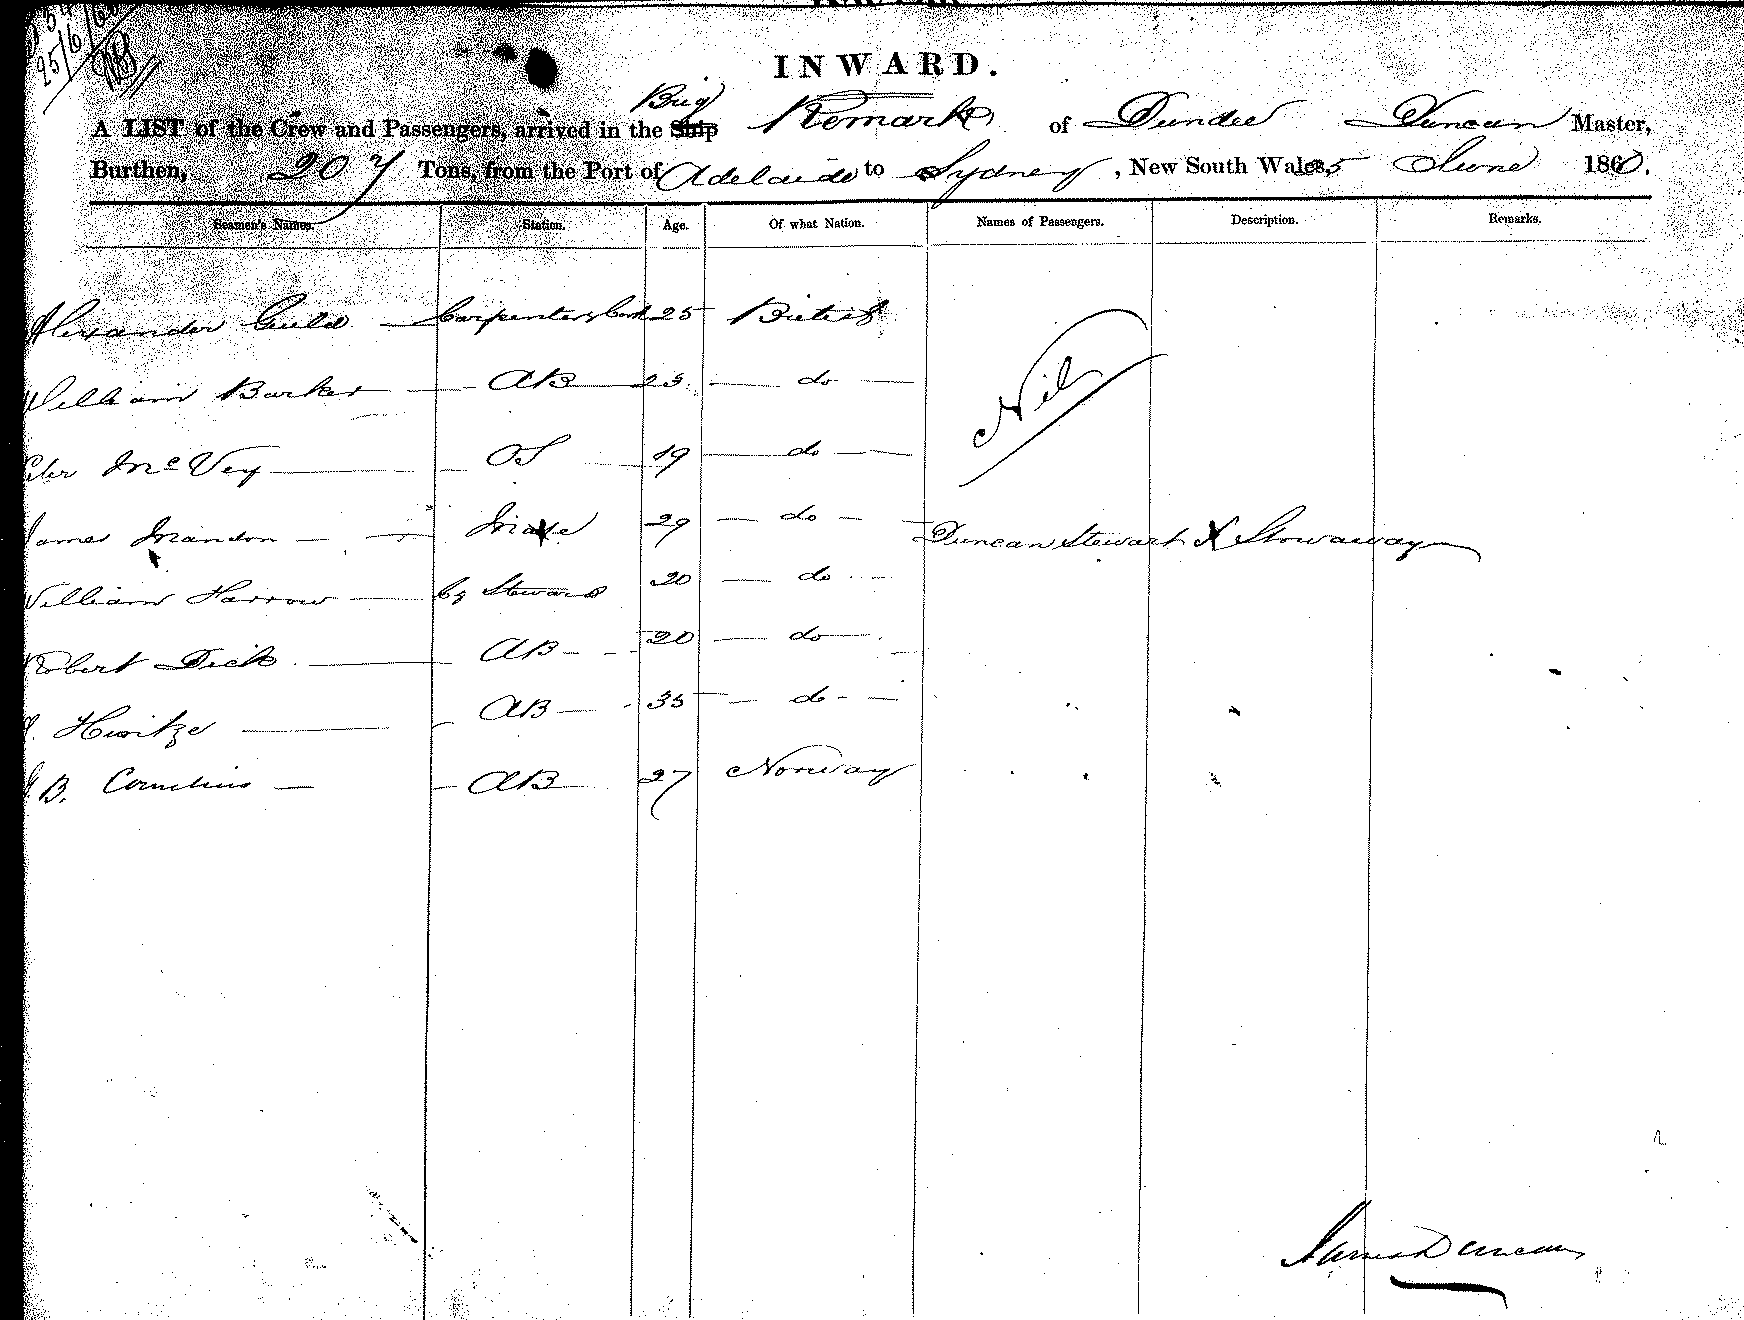 25/6/60
INWARD.
Brig
A LIST of the Crew and Passengers, arrived in the Ship Remark of Dundee Duncan Master,
Burthen, 207 Tons, from the Port of Adelaide to Sydney, New South Wales, 25 June 1860.
Seamen's Names. Station. Age. Of what Nation. Names of Passengers. Description. Remarks.
Alexander Guild Carpenter & Cook 25 British
Nil
William Barker AB 23 do
Peter McVey OS 19 do
James Mandon Mate 29 do Duncan Stewart X Stowaway
William Harrow Steward 20 do
Robert Dick AB 20 do
AB 35 do
B. Cornelius AB 27 Norway
James Duncan